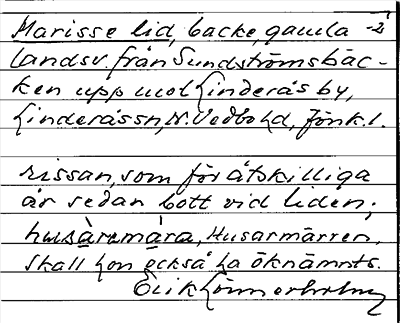 Marisse lid, backe, gamla -2
landsv. från Sundströmsbäc-
ken upp mot Linderås by,
Linderås sn, N. Vedbo hd, Jönk. l.
rissan, som för åtskilliga
år sedan bott vid liden;
husàremára, Husarmärren,
skall hon också ha öknämnts.
Erik Lönnerholm